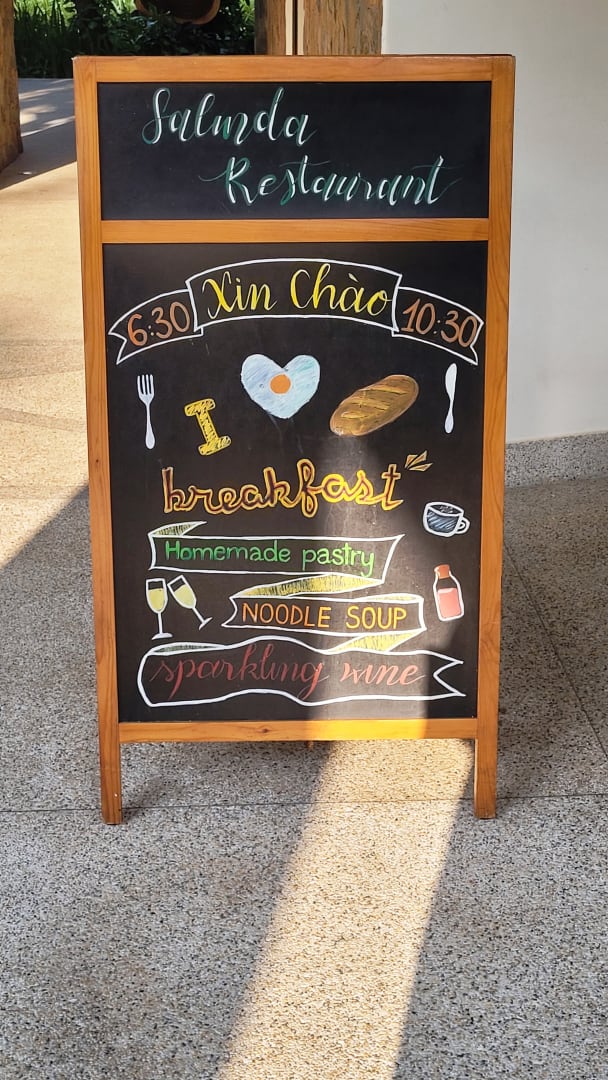 Salinda
Restaurant
6:30 Xin Chào 10:30
I
breakfast
Homemade pastry
NOODLE SOUP
sparkling wine